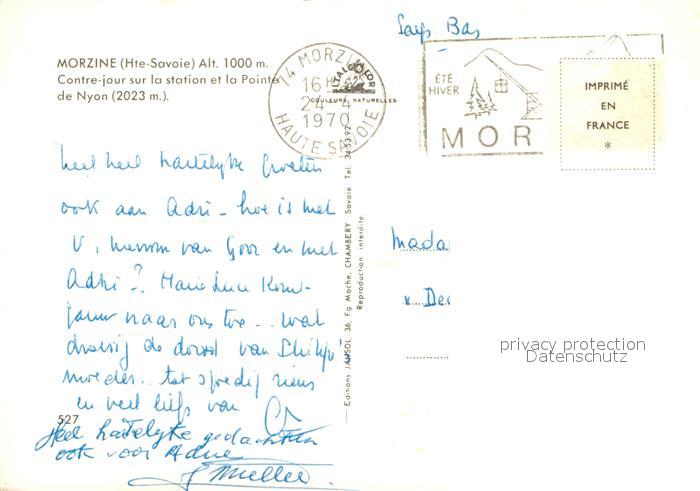 Pays Bas
MORZINE (Hte-Savoie) Alt. 1000 m.
Contre-jour sur la station et la Pointe
de Nyon (2023 m.).
74 MORZINE
16 H
24 - 4
1970
HAUTE SAVOIE
ITALCOLOR
COULEURS NATURELLES
ÉTÉ
HIVER
MOR
IMPRIMÉ
EN
FRANCE
*
heel heel hartelijke groeten
ook aan Adri - hoe is met
U, mevrouw van Goor en met
Adri -?
naar ons toe .. wat
droevig de dood van
moeder .. tot spoedig
en veel liefs van
527
Heel hartelijke gedachten
ook voor
Editions JANSOL 36, Fg Maché, CHAMBERY Savoie Tel. 34-53-92
Reproduction interdite.
Mada
privacy protection
Datenschutz